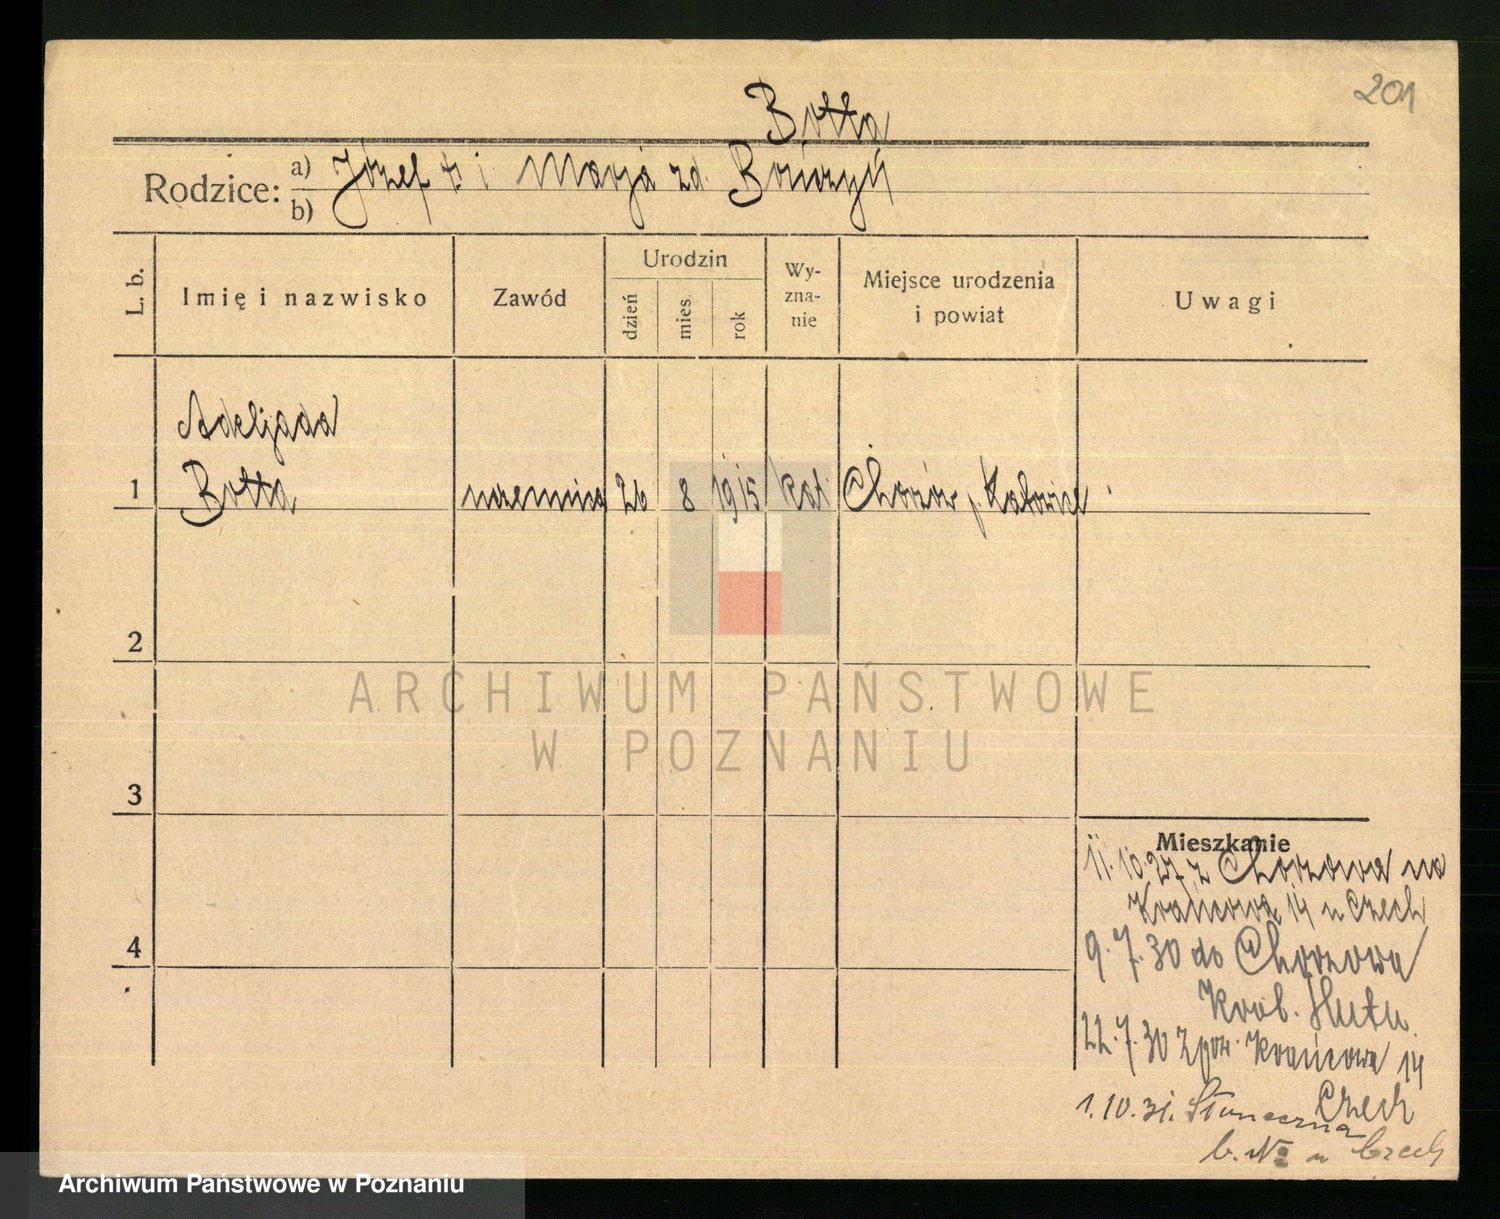 201
Botta
Rodzice: a) Józef † i Marja zd.
b)
L. b.
Imię i nazwisko
Zawód
Urodzin
dzień
mies.
rok
Wy-
zna-
nie
Miejsce urodzenia
i powiat
Uwagi
Adeljada
1 Botta uczennica 26 8 1915 kat Chorzów p. Katowice
2
ARCHIWUM PAŃSTWOWE
W POZNANIU
3
4
Mieszkanie
11.10.27 z Chorzowa na
Krańcowa 14 u Czech
9.7.30 do Chorzowa
Król. Huta
22.7.30 Z pow. Krańcowa 14
Czech
1.10.31. Słoneczna
b. No u Czech
Archiwum Państwowe w Poznaniu